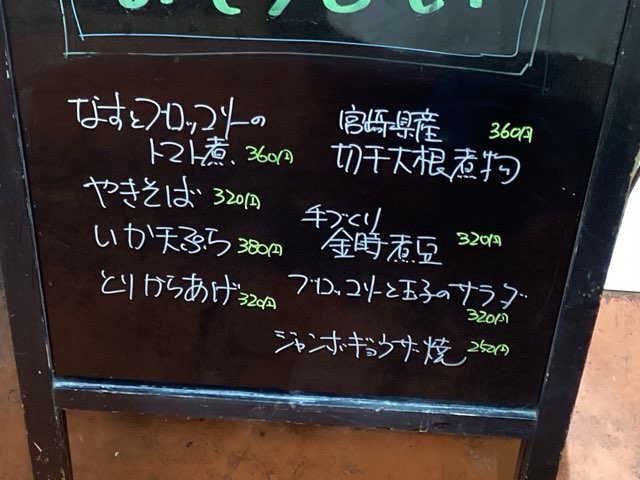 なすとブロッコリーの
トマト煮 360円
やきそば 320円
いか天ぷら 380円
とりからあげ 320円
宮崎県産 360円
切干大根煮物
手づくり
金時煮豆 320円
ブロッコリーと玉子のサラダ
320円
ジャンボギョウザ焼 250円